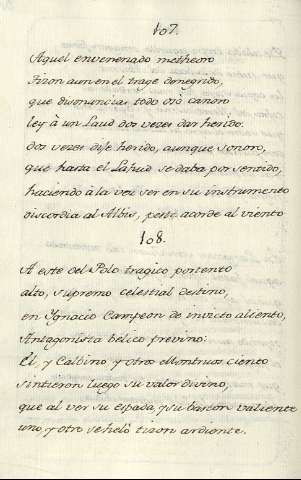 107.
Aquel envenenado metheoro
Tizon aun en el trage denegrido,
que disonancias todo oyò canoro
ley à un Laud dos vezes dar herido:
dos vezes dise herido, aunque sonoro,
que hasta el Lahud se daba por sentido,
haciendo à la vez ser en su instrumento
discordia al Albis, pero acorde al viento
108.
A este del Polo tragico portento
alto, supremo celestial destino,
en Ignacio Campeon de invicto aliento,
Antagonista belico previno:
El, y Calbino y otros Monstruos ciento
sintieron luego su valor divino,
que al ver su espada, y su baston valiente
uno, y otro se helò tizon ardiente.